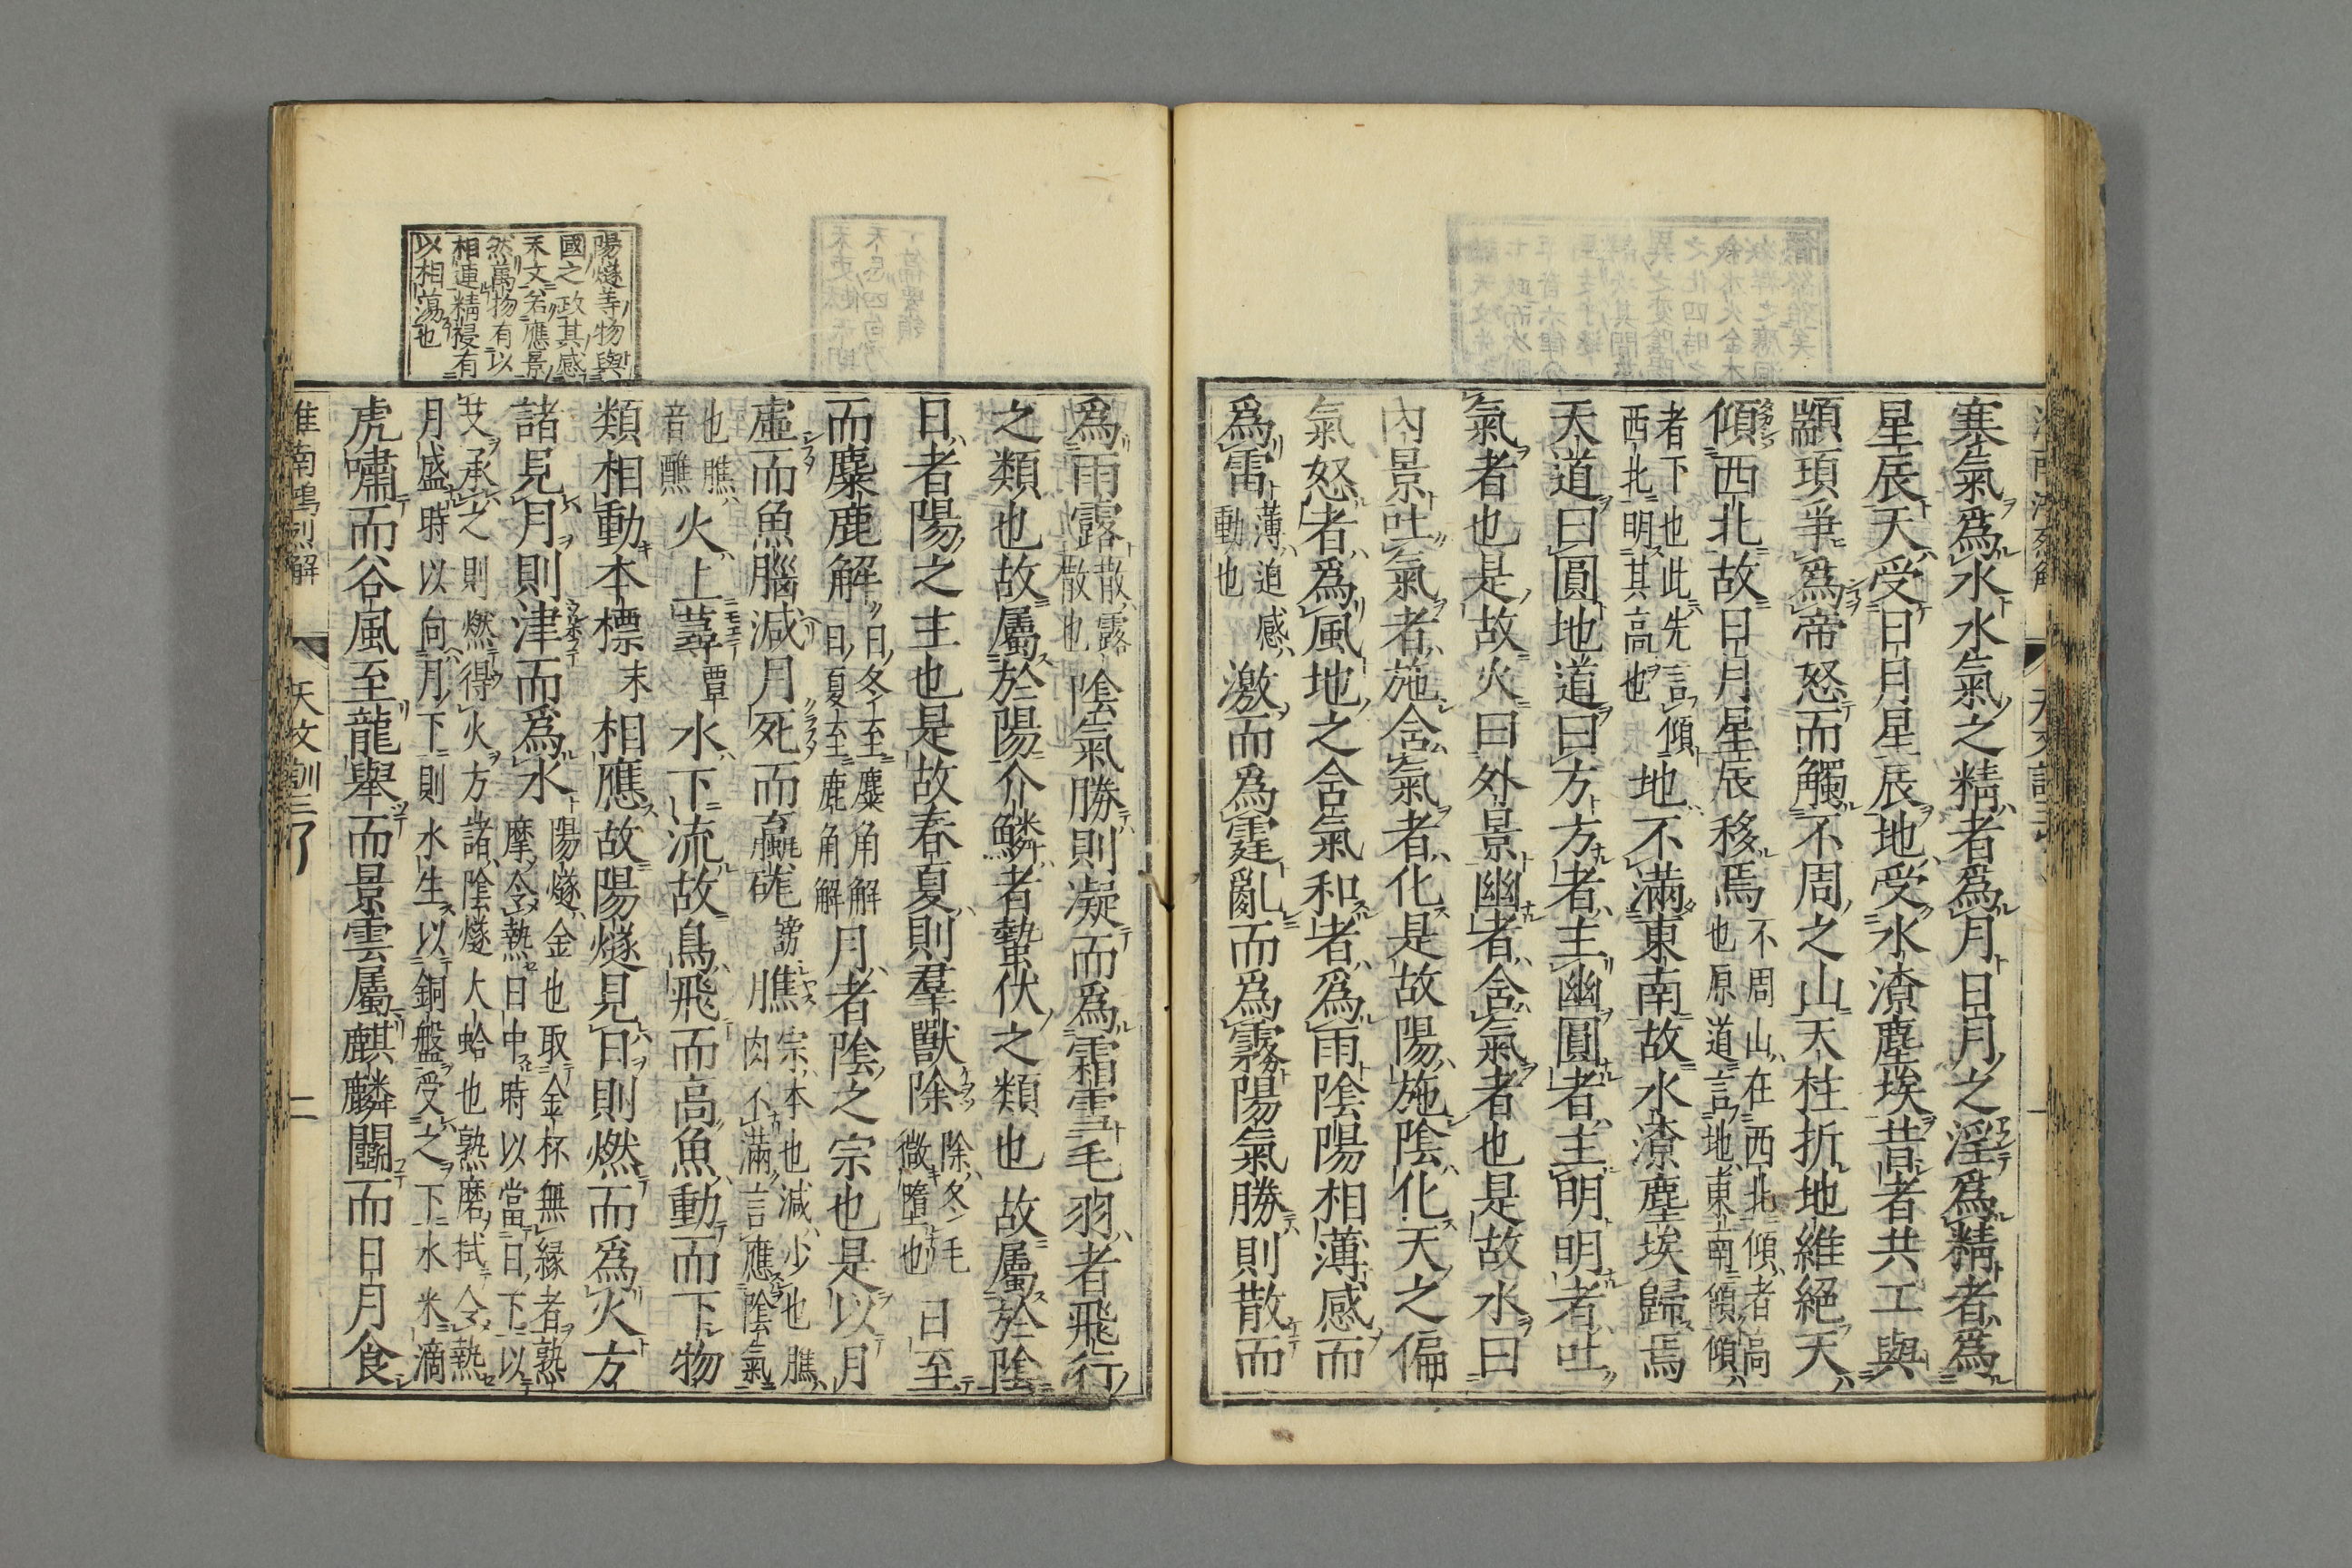 寒氣爲水水氣之精者爲月日月之淫爲精者爲
星辰天受日月星辰地受水潦塵埃昔者共工與
顓頊爭爲帝怒而觸不周之山天柱折地維絕天
傾西北故日月星辰移焉不周山在西北傾者高也原道言地東南傾傾
者下也此先言傾西北明其高也地不滿東南故水潦塵埃歸焉
天道曰圓地道曰方方者主幽圓者主明明者吐
氣者也是故火曰外景幽者含氣者也是故水曰
內景吐氣者施含氣者化是故陽施陰化天之偏
氣怒者爲風地之含氣和者爲雨陰陽相薄感而
爲雷薄迫感動也激而爲霆亂而爲霧陽氣勝則散而
爲雨露散露散也陰氣勝則凝而爲霜雪毛羽者飛行
之類也故屬於陽介鱗者蟄伏之類也故屬於陰
日者陽之主也是故春夏則羣獸除除冬毛微墮也日至
而麋鹿解日冬至麋角解日夏至鹿角解月者陰之宗也是以月
虛而魚腦減月死而蠃硥膲宗本也減少也膲肉不滿言應陰氣
也膲音醮火上蕁蕁水下流故鳥飛而高魚動而下物
類相動本標末相應故陽燧見日則燃而爲火方
諸見月則津而爲水陽燧金也取金杯無緣者熟摩令熱日中時以當日下以
艾承之則燃得火方諸陰燧大蛤也熟磨拭令熱
月盛時以向月下則水生以銅盤受之下水米滴
虎嘯而谷風至龍舉而景雲屬麒麟鬭而日月食
淮南鴻烈解 天文訓三 二
陽燧等物與
國之政其感
禾文名應景
然萬物有以
相連精祲有
以相蕩也